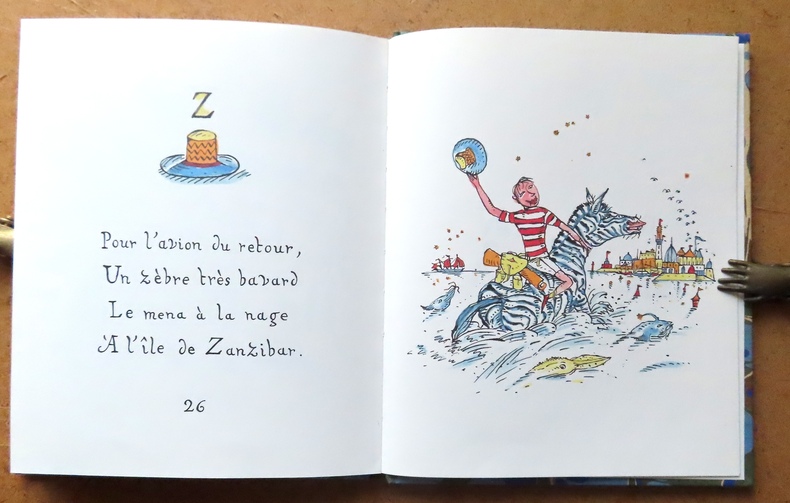 Z
Pour l'avion du retour,
Un zèbre très bavard
Le mena à la nage
À l'île de Zanzibar.
26